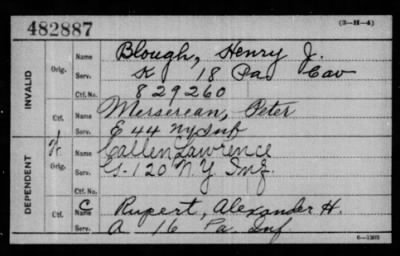 482887 (3-H-4)
INVALID
Orig. Name Blough, Henry J.
Serv. K 18 Pa Cav
Ctf. No. 829260
Ctf. Name Mersereau, Peter
Serv. E 44 NY Inf
DEPENDENT
Orig. Name Callen Lawrence
Serv. G-120 N.Y. Inf.
Ctf. No.
Ctf. Name C Rupert, Alexander H.
Serv. A 16 Pa Inf